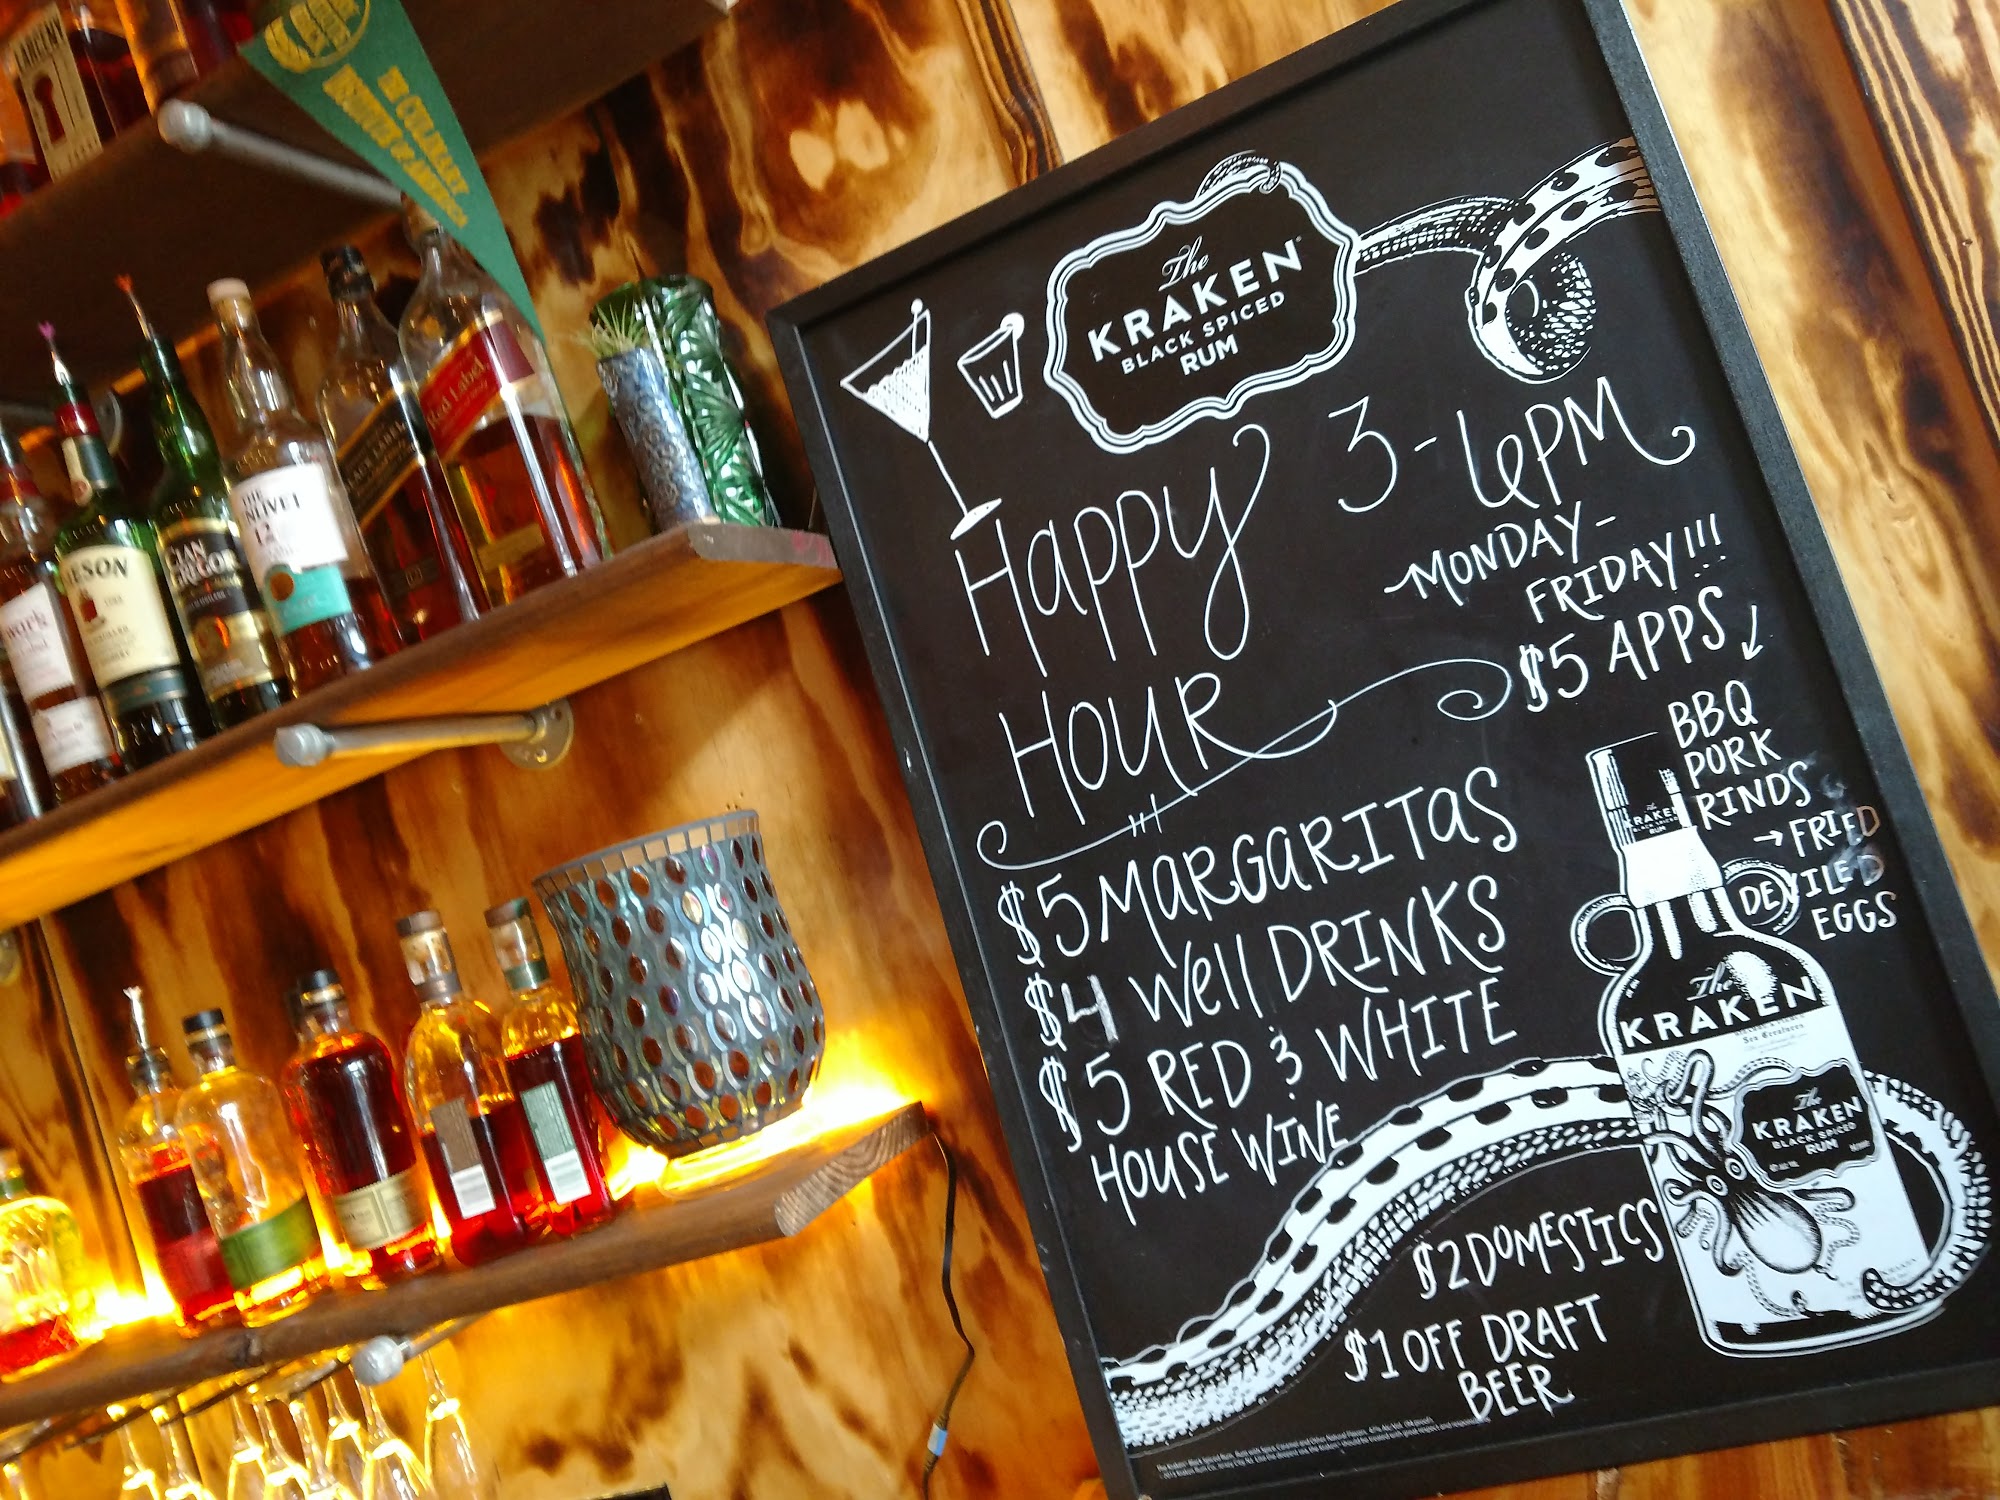 LARCENY
THE CULINARY
INSTITUTE OF AMERICA
Red Label
BLACK LABEL
12
The
KRAKEN
BLACK SPICED
RUM
3-6PM
HAPPY
HOUR
MONDAY-
FRIDAY!!!
$5 APPS
BBQ
PORK
RINDS &
→ FRIED
DEVILED
EGGS
$5 MARGARITAS
$4 Well DRINKS
$5 RED & WHITE
HOUSE WINE
$2 DOMESTICS
$1 OFF DRAFT
BEER
The
KRAKEN
BLACK SPICED
RUM
The
KRAKEN
Sea Creatures
The
KRAKEN
BLACK SPICED
RUM